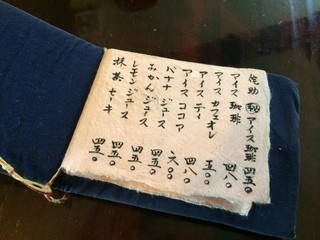 佐助 ㊙ アイス珈琲 四五〇
アイス珈琲 四八〇
アイスカフェオレ 五〇〇
アイスティ 四八〇
アイスココア 六〇〇
バナナジュース 四五〇
みかんジュース 四五〇
レモンジュース 四五〇
抹茶セーキ 四五〇